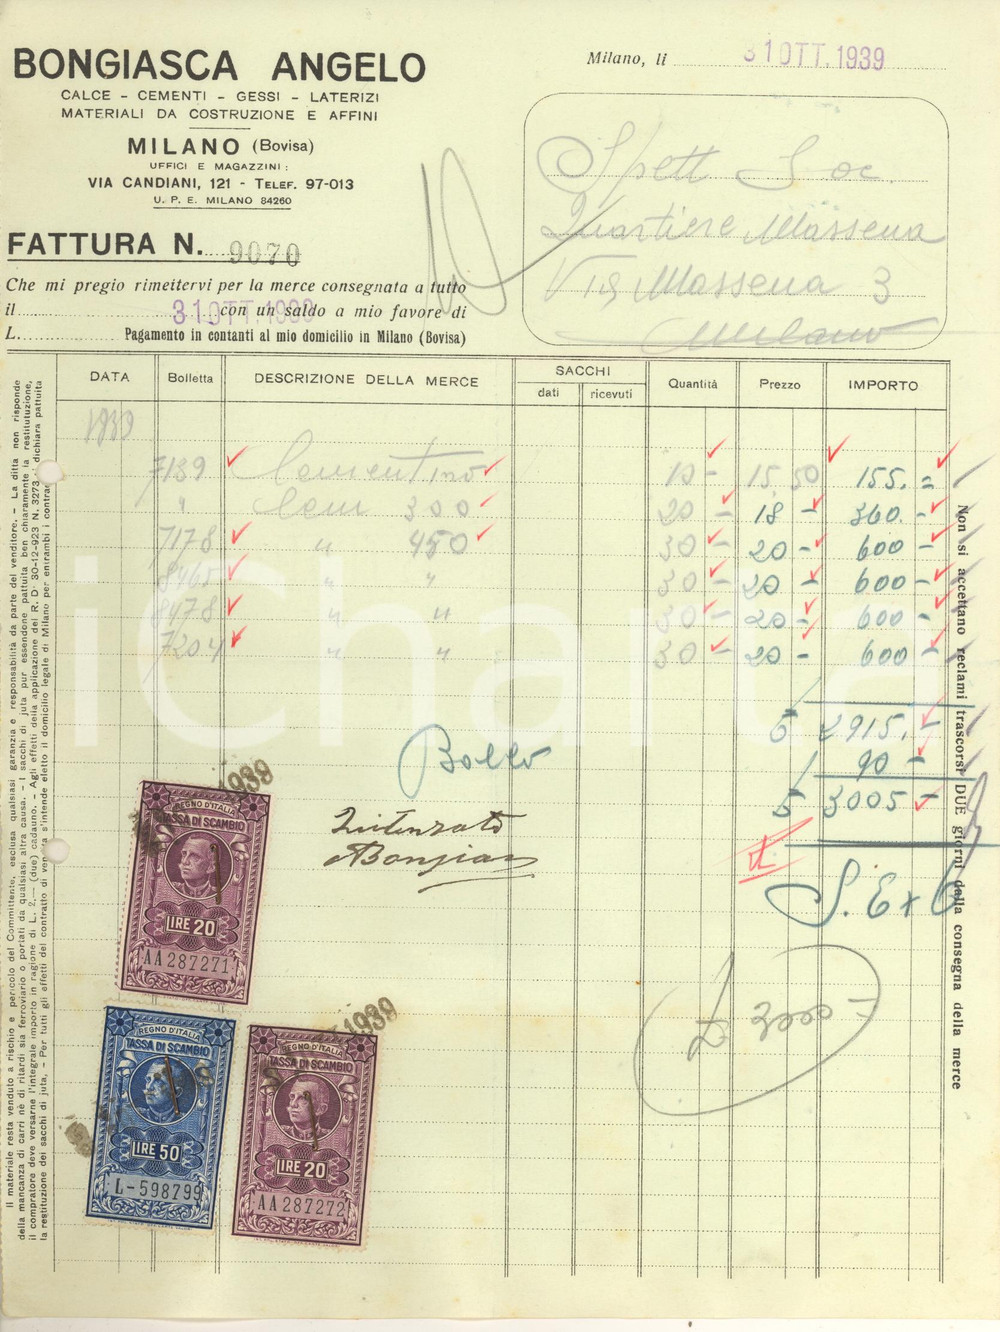 BONGIASCA ANGELO
CALCE - CEMENTI - GESSI - LATERIZI
MATERIALI DA COSTRUZIONE E AFFINI
MILANO (Bovisa)
UFFICI E MAGAZZINI:
VIA CANDIANI, 121 - TELEF. 97-013
U. P. E. MILANO 84260
Milano, li 31 OTT. 1939
Spett Soc.
Quartiere Massena
Via Massena 3
Milano
FATTURA N. 9070
Che mi pregio rimettervi per la merce consegnata a tutto
il 31 OTT. 1939 con un saldo a mio favore di
L. Pagamento in contanti al mio domicilio in Milano (Bovisa)
DATA Bolletta DESCRIZIONE DELLA MERCE SACCHI dati ricevuti Quantità Prezzo IMPORTO
1939
7139 Cementino 10 - 15 50 155. =
" Cem 300 20 - 18 - 360. -
7178 " 450 30 - 20 - 600 -
8465 " " 30 - 20 - 600 -
8478 " " 30 - 20 - 600 -
7204 " " 30 - 20 - 600 -
2915. -
Bollo 90 -
3005 -
S. E & O
Quitanzato
ABongiasca
L. 3000 -
1939
REGNO D'ITALIA
TASSA DI SCAMBIO
LIRE 20
AA 287271
REGNO D'ITALIA
TASSA DI SCAMBIO
LIRE 50
L-598799
1939
REGNO D'ITALIA
TASSA DI SCAMBIO
LIRE 20
AA 287272
Il materiale resta venduto a rischio e pericolo del Committente, esclusa qualsiasi garanzia e responsabilità da parte del venditore. - La ditta non risponde
della mancanza di carri nè di ritardi sia ferroviario o portati da qualsiasi altra causa. - I sacchi di juta pur essendone pattuita ben chiaramente la restituzione,
il compratore deve versarne l'integrale importo in ragione di L. 2,— (due) cadauno. - Agli effetti della applicazione del R. D. 30-12-923 N. 3273, dichiara pattuita
la restituzione dei sacchi di juta, - Per tutti gli effetti del contratto di s'intende eletto il domicilio legale di Milano per entrambi i
Non si accettano reclami trascorsi DUE giorni dalla consegna della merce
iCharta